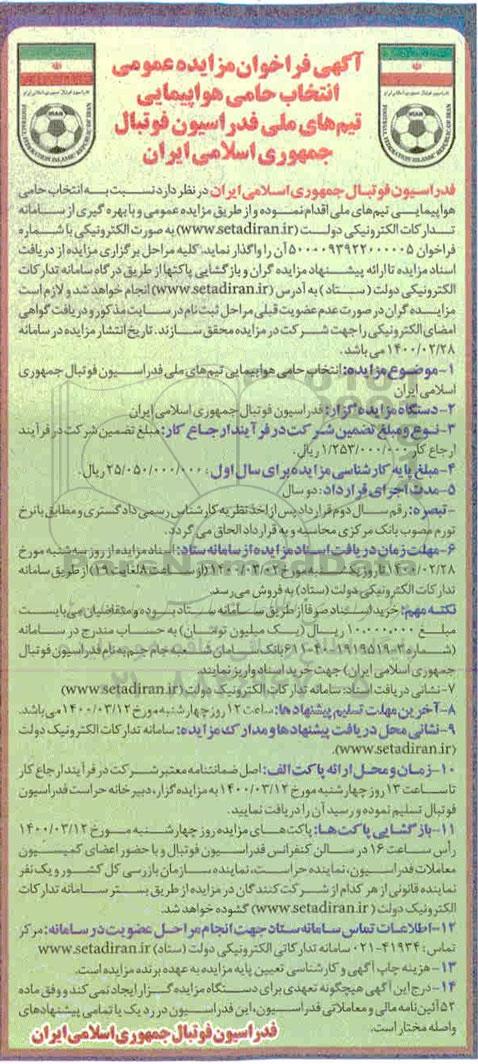 آگهی فراخوان مزایده عمومی
انتخاب حامی هواپیمایی
تیم‌های ملی فدراسیون فوتبال
جمهوری اسلامی ایران
فدراسیون فوتبال جمهوری اسلامی ایران در نظر دارد نسبت به انتخاب حامی
هواپیمایی تیم‌های ملی اقدام نموده و از طریق مزایده عمومی و با بهره گیری از سامانه
تدارکات الکترونیکی دولت (www.setadiran.ir) به صورت الکترونیکی با شماره
فراخوان ۵۰۰۰۰۹۳۹۲۲۰۰۰۰۰۵ آن را واگذار نماید. کلیه مراحل برگزاری مزایده از دریافت
اسناد مزایده تا ارائه پیشنهاد مزایده گران و بازگشایی پاکتها از طریق درگاه سامانه تدارکات
الکترونیکی دولت (ستاد) به آدرس (www.setadiran.ir) انجام خواهد شد و لازم است
مزایده گران در صورت عدم عضویت قبلی مراحل ثبت نام در سایت مذکور و دریافت گواهی
امضای الکترونیکی را جهت شرکت در مزایده محقق سازند. تاریخ انتشار مزایده در سامانه
۱۴۰۰/۰۲/۲۸ می باشد.
۱-موضوع مزایده: انتخاب حامی هواپیمایی تیم‌های ملی فدراسیون فوتبال جمهوری
اسلامی ایران
۲-دستگاه مزایده گزار: فدراسیون فوتبال جمهوری اسلامی ایران
۳-نوع و مبلغ تضمین شرکت در فرآیند ارجاع کار: مبلغ تضمین شرکت در فرآیند
ارجاع کار ۱/۲۵۳/۰۰۰/۰۰۰ ریال.
۴-مبلغ پایه کارشناسی مزایده برای سال اول: ۲۵/۰۵۰/۰۰۰/۰۰۰ ریال.
۵-مدت اجرای قرارداد: دو سال
-تبصره: رقم سال دوم قرارداد پس از اخذ نظریه کارشناس رسمی دادگستری و مطابق با نرخ
تورم مصوب بانک مرکزی محاسبه و به قرارداد الحاق می گردد.
۶-مهلت زمان دریافت اسناد مزایده از سامانه ستاد: اسناد مزایده از روز سه شنبه مورخ
۱۴۰۰/۰۲/۲۸ تا روز یکشنبه مورخ ۱۴۰۰/۰۳/۰۲ (از ساعت ۸ لغایت ۱۹) از طریق سامانه
تدارکات الکترونیکی دولت (ستاد) به فروش می رسد.
نکته مهم: خرید اسناد صرفا از طریق سامانه ستاد بوده و متقاضیان می بایست
مبلغ ۱۰،۰۰۰،۰۰۰ ریال (یک میلیون تومان) به حساب مندرج در سامانه
(شماره ۳-۱۹۱۹۵۱۹-۴۰-۶۱۱ بانک سامان شعبه جام جم به نام فدراسیون فوتبال
جمهوری اسلامی ایران) جهت خرید اسناد واریز نمایند.
۷-نشانی دریافت اسناد: سامانه تدارکات الکترونیک دولت (www.setadiran.ir)
۸-آخرین مهلت تسلیم پیشنهادها: ساعت ۱۲ روز چهارشنبه مورخ ۱۴۰۰/۰۳/۱۲ می باشد.
۹-نشانی محل دریافت پیشنهادها و مدارک مزایده: سامانه تدارکات الکترونیک دولت
(www.setadiran.ir).
۱۰-زمان و محل ارائه پاکت الف: اصل ضمانتنامه معتبر شرکت در فرآیند ارجاع کار
تا ساعت ۱۳ روز چهارشنبه مورخ ۱۴۰۰/۰۳/۱۲ به مزایده گزار، دبیرخانه حراست فدراسیون
فوتبال تسلیم نموده و رسید آن را دریافت نمایید.
۱۱-بازگشایی پاکت‌ها: پاکت‌های مزایده روز چهارشنبه مورخ ۱۴۰۰/۰۳/۱۲
رأس ساعت ۱۶ در سالن کنفرانس فدراسیون فوتبال و با حضور اعضای کمیسیون
معاملات فدراسیون، نماینده حراست، نماینده سازمان بازرسی کل کشور و یک نفر
نماینده قانونی از هر کدام از شرکت کنندگان در مزایده از طریق بستر سامانه تدارکات
الکترونیک دولت (www.setadiran.ir) گشوده خواهد شد.
۱۲-اطلاعات تماس سامانه ستاد جهت انجام مراحل عضویت در سامانه: مرکز
تماس: ۴۱۹۳۴-۰۲۱ سامانه تدارکاتی الکترونیکی دولت (ستاد) www.setadiran.ir
۱۳-هزینه چاپ آگهی و کارشناسی تعیین پایه مزایده به عهده برنده مزایده است.
۱۴-درج این آگهی هیچگونه تعهدی برای دستگاه مزایده گزار ایجاد نمی کند و وفق ماده
۵۲ آئین نامه مالی و معاملاتی فدراسیون، این فدراسیون در رد یک یا تمامی پیشنهادهای
واصله مختار است.
فدراسیون فوتبال جمهوری اسلامی ایران